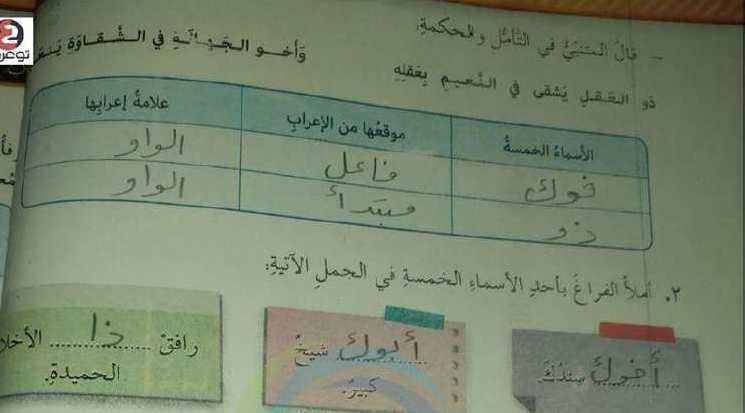 - قالَ المتنبّي في التّأمُّل والحكمةِ:
ذو العَقلِ يَشقى في النَّعيمِ بِعَقلِهِ وَأخو الجَهالَةِ في الشَّقاوَةِ
الأسماءُ الخمسةُ موقعُها من الإعرابِ علامةُ إعرابِها
فوك فاعل الواو
ذو مبتدأ الواو
٢. أملأُ الفراغَ بأحدِ الأسماءِ الخمسةِ في الجملِ الآتيةِ:
أخوك سندُكَ.
أبوك شيخٌ
كبيرٌ.
رافقْ ذا
الحميدةِ.